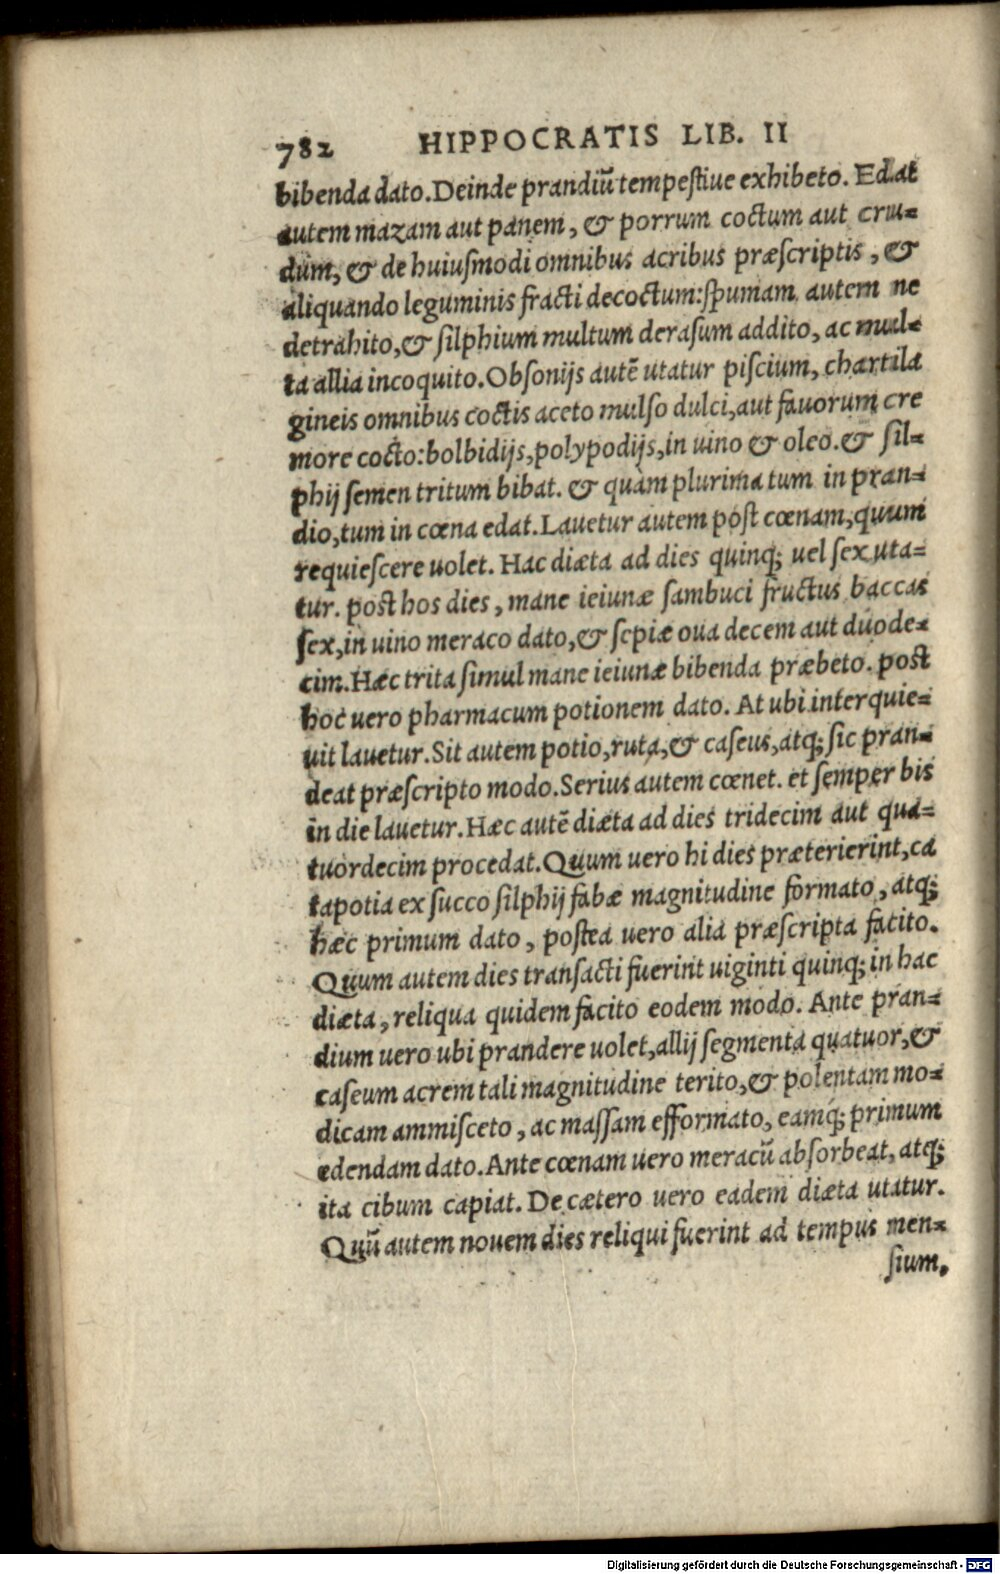 782 HIPPOCRATIS LIB. II
bibenda dato. Deinde prandiū tempestiue exhibeto. Edat
autem mazam aut panem, & porrum coctum aut cru-
dum, & de huiusmodi omnibus acribus præscriptis, &
aliquando leguminis fracti decoctum: spumam autem ne
detrahito, & silphium multum derasum addito, ac mul-
ta allia incoquito. Obsonijs autē utatur piscium, chartila
gineis omnibus coctis aceto mulso dulci, aut fauorum cre
more cocto: bolbidijs, polypodijs, in uino & oleo. & sil-
phij semen tritum bibat. & quàm plurima tum in pran-
dio, tum in cœna edat. Lauetur autem post cœnam, quum
requiescere uolet. Hac diæta ad dies quinq; uel sex uta-
tur. post hos dies, mane ieiunæ sambuci fructus baccas
sex, in uino meraco dato, & sepiæ oua decem aut duode-
cim. Hæc trita simul mane ieiunæ bibenda præbeto. post
hoc uero pharmacum potionem dato. At ubi interquie-
uit lauetur. Sit autem potio, ruta, & caseus, atq; sic pran-
deat præscripto modo. Serius autem cœnet. et semper bis
in die lauetur. Hæc autē diæta ad dies tridecim aut qua-
tuordecim procedat. Quum uero hi dies præterierint, ca
tapotia ex succo silphij fabæ magnitudine formato, atq;
hæc primum dato, postea uero alia præscripta facito.
Quum autem dies transacti fuerint uiginti quinq; in hac
diæta, reliqua quidem facito eodem modo. Ante pran-
dium uero ubi prandere uolet, allij segmenta quatuor, &
caseum acrem tali magnitudine terito, & polentam mo-
dicam ammisceto, ac massam efformato, eamq́; primum
edendam dato. Ante cœnam uero meracū absorbeat, atq;
ita cibum capiat. De cætero uero eadem diæta utatur.
Quū autem nouem dies reliqui fuerint ad tempus men-
sium.
Digitalisierung gefördert durch die Deutsche Forschungsgemeinschaft - DFG